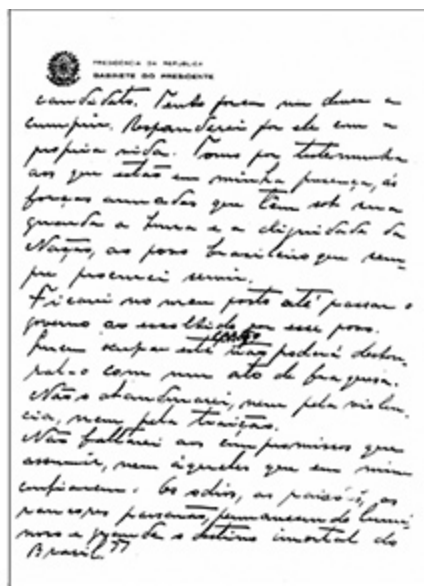 PRESIDÊNCIA DA REPÚBLICA
GABINETE DO PRESIDENTE
candidato. Tenho porem um dever a
cumprir. Responderei por ele com a
propria vida. Tomo por testemunha
aos que estão em minha presença, ás
forças armadas que têm sob sua
guarda a honra e a dignidade da
Nação, ao povo brasileiro que sem-
pre procurei servir.
Ficarei no meu posto até passar o
governo ao escolhido por esse povo.
Quem ocupar este cargo poderá deslus-
tral-o com um ato de fraqueza.
Não o abandonarei, nem pela violen-
cia, nem pela traição.
Não faltarei aos compromissos que
assumi, nem áqueles que em mim
confiaram. Os odios, as paixões, os
rancores passarão, permanecendo lumi-
noso e grande o destino imortal do
Brasil"